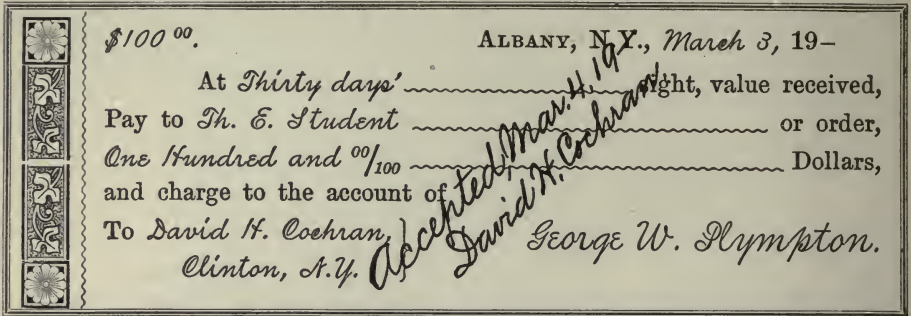 $100 00. ALBANY, N.Y., March 3, 19–
At Thirty days' sight, value received,
Pay to Th. E. Student or order,
One Hundred and 00/100 Dollars,
and charge to the account of
To David H. Cochran, George W. Plympton.
Clinton, N.Y.
Accepted, Mar. 4, 19–
David H. Cochran